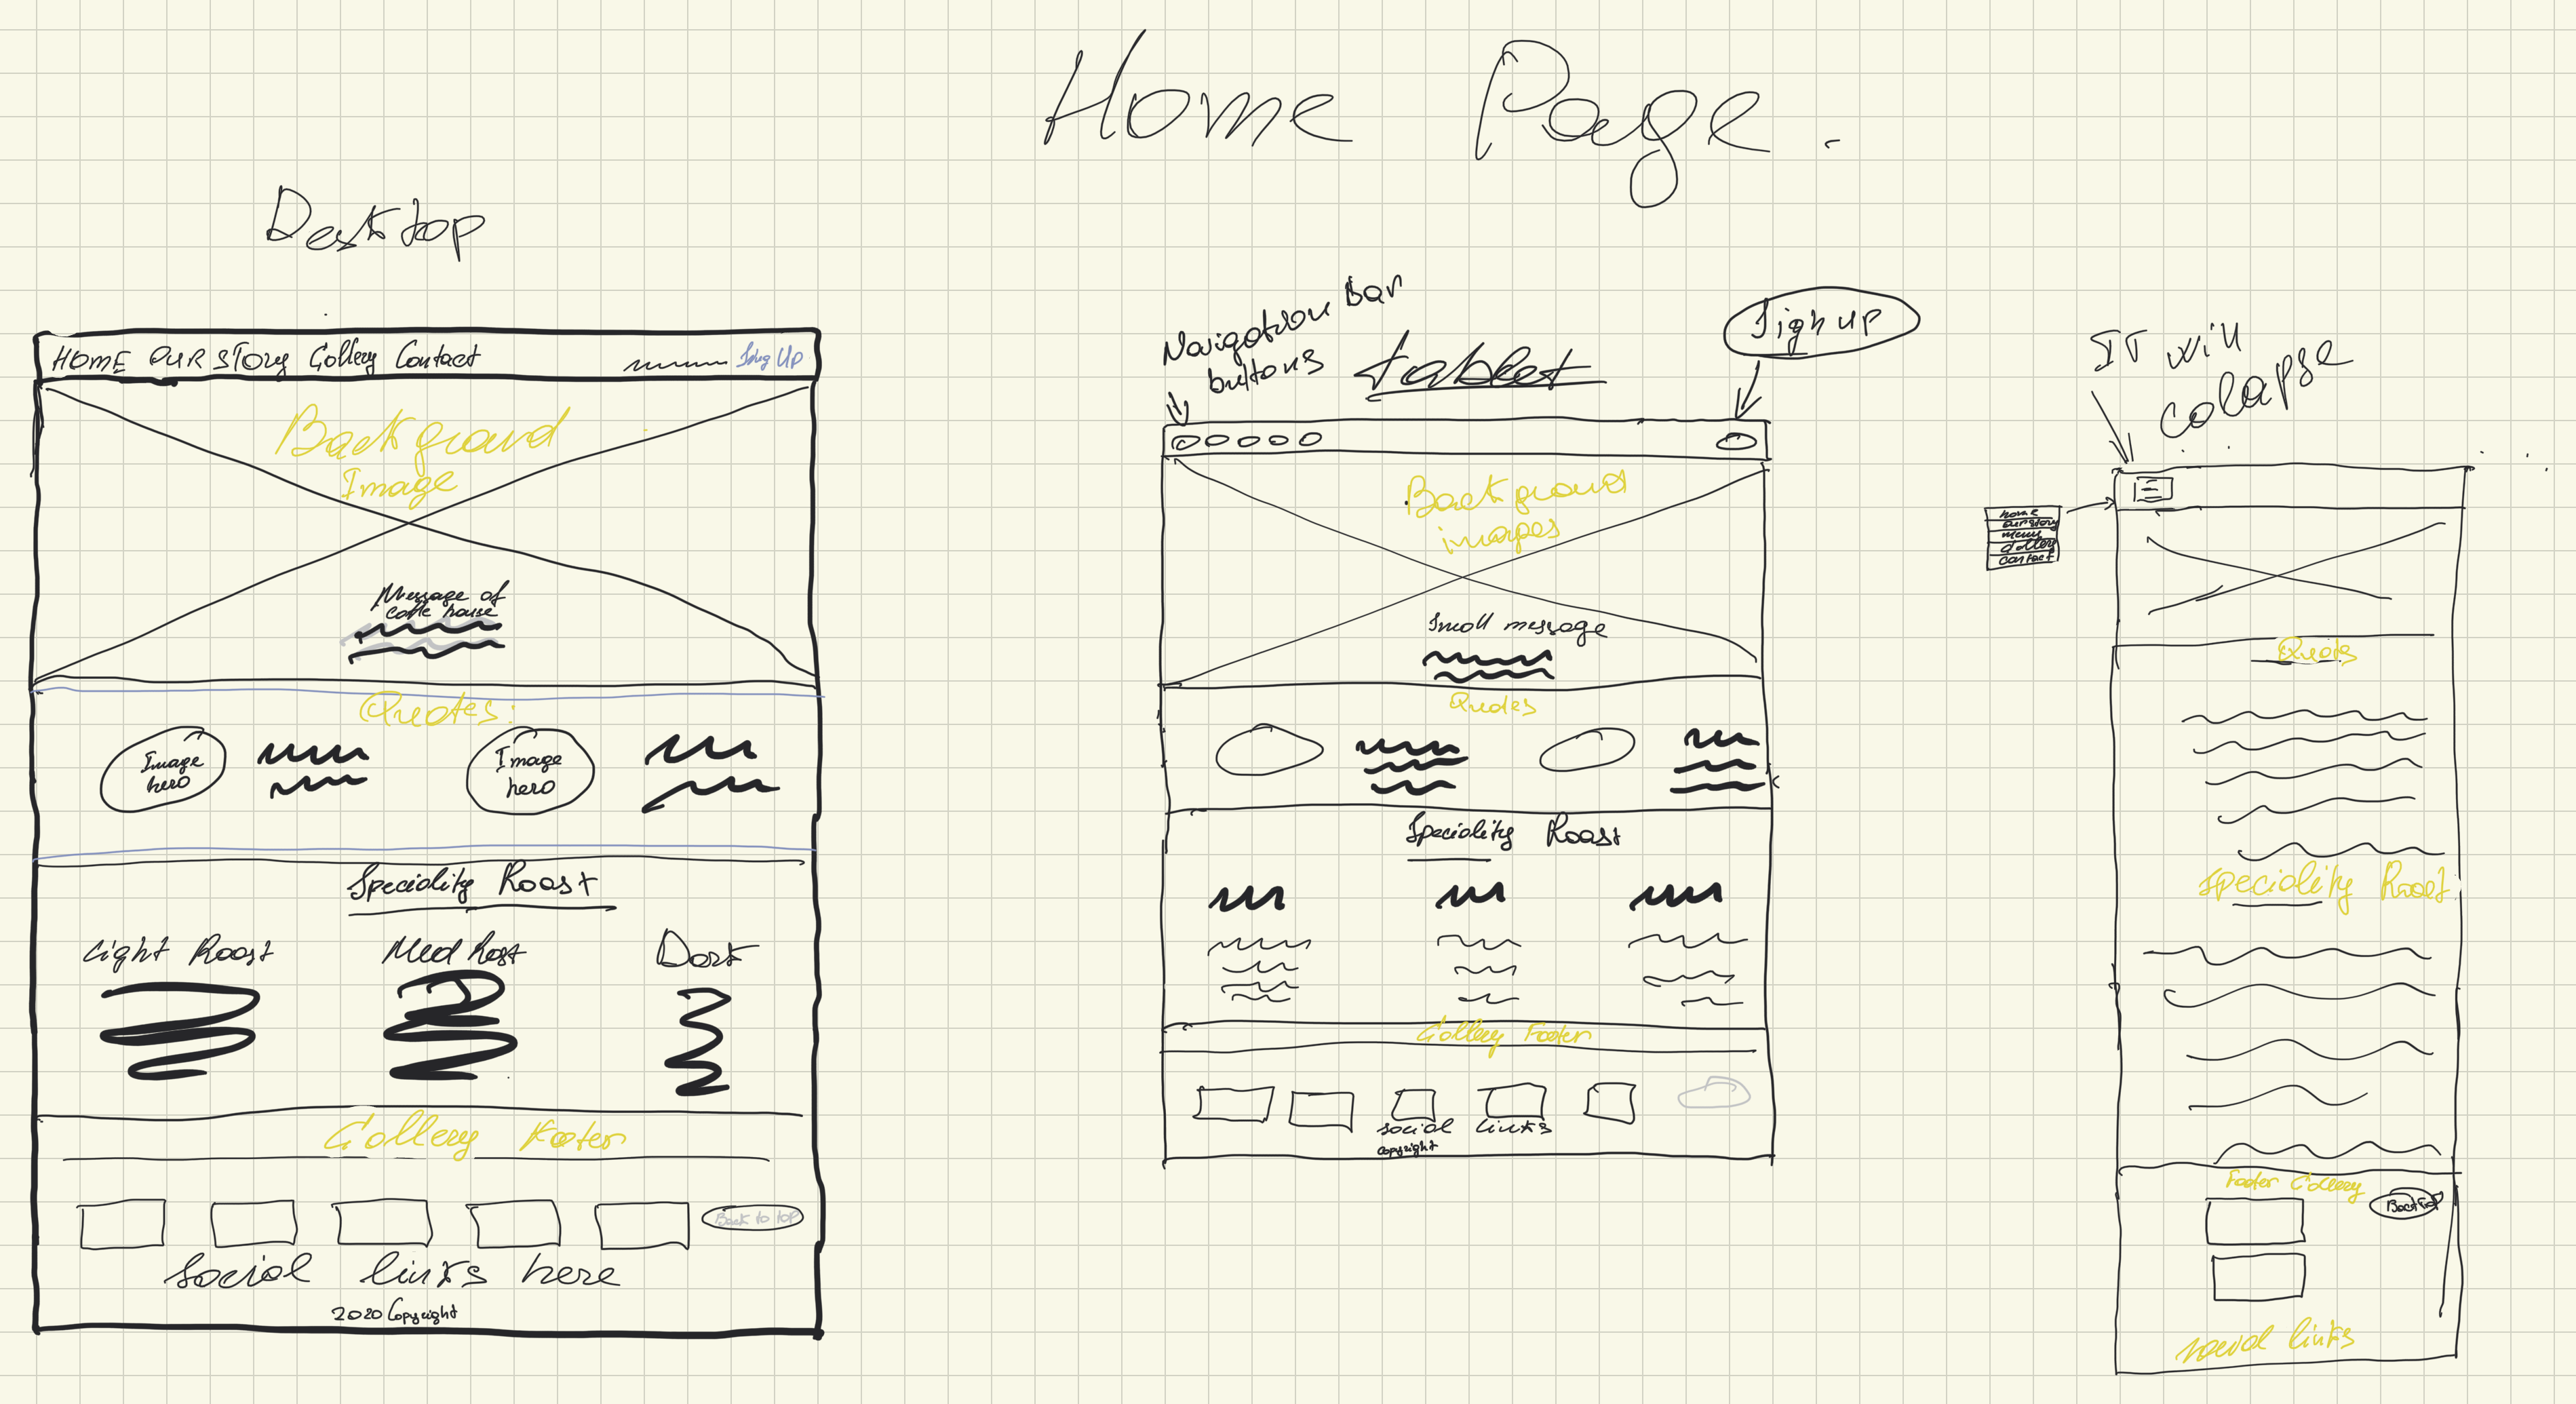 Home Page.
Desktop
HOME OUR STORY Gallery Contact Sing Up
Background
Image
Message of
coffe house
Quotes:
Image
hero
Image
hero
Speciality Roast
Light Roast Med Rost Dark
Gallery Footer
Back to top
Social links here
2020 Copyright
Navigation Bar
buttons
tablet
Sign up
Background
images
Small message
Quotes
Speciality Roast
Gallery Footer
social links
copyright
IT will
colapse
home
our story
menu
Gallery
contact
Quotes
Speciality Roast
Footer Gallery
social links